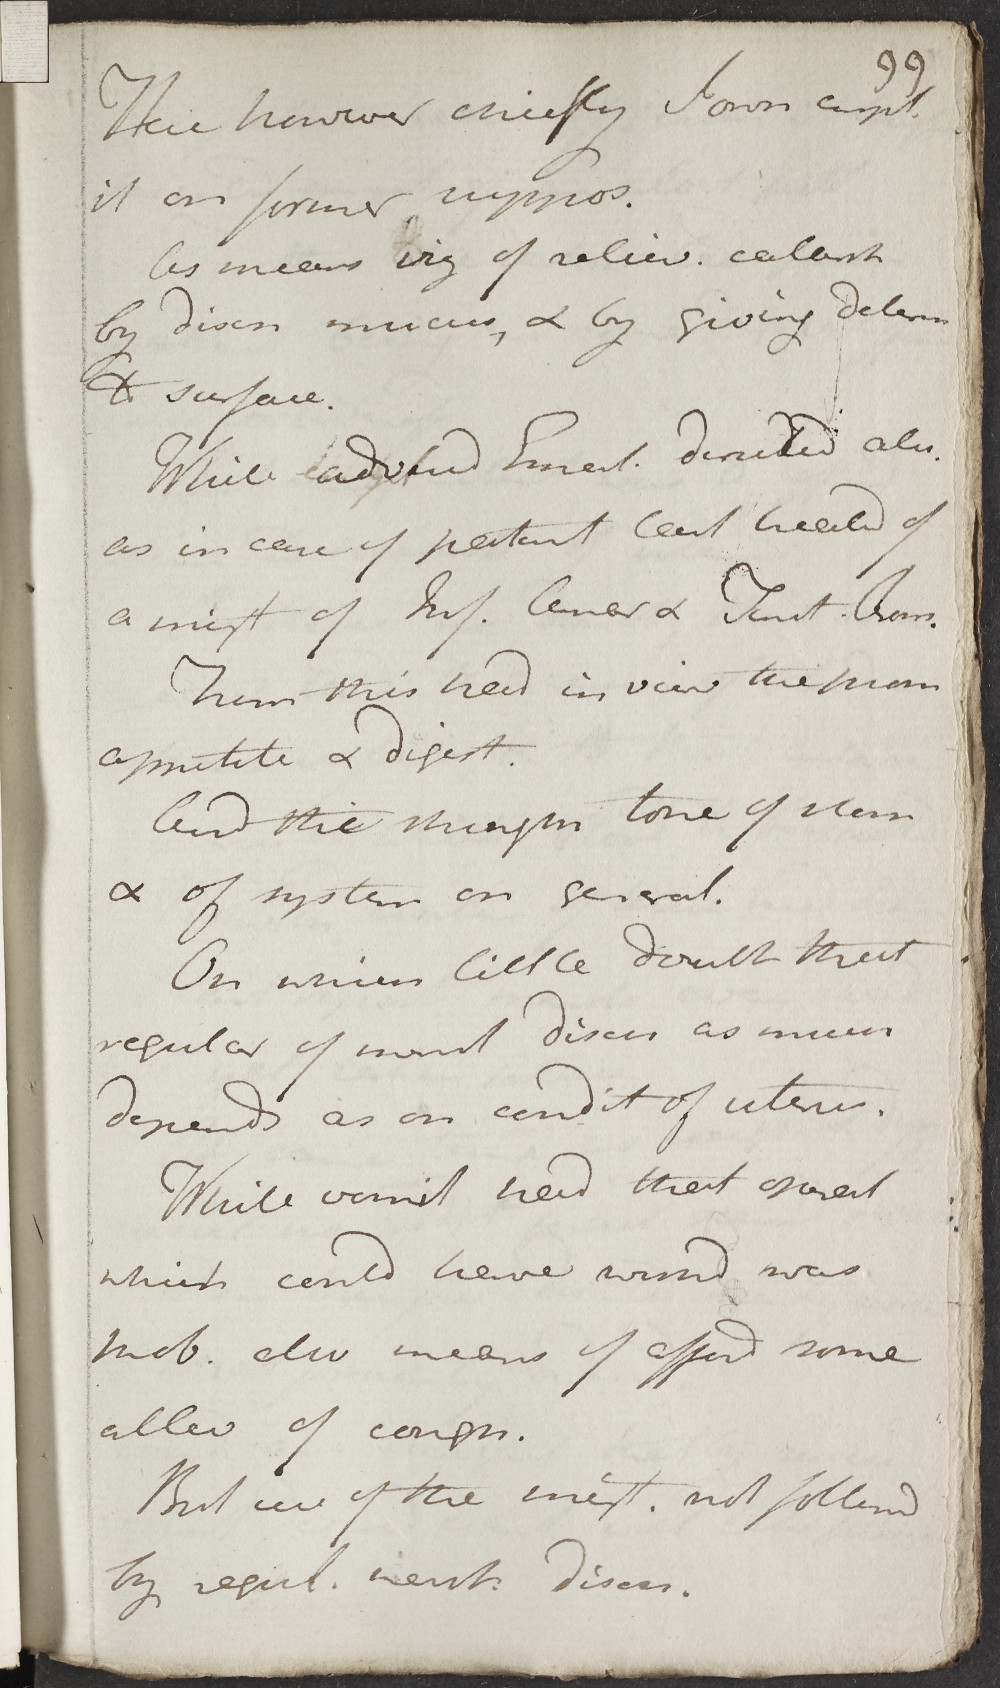 99
Here however chiefly I own empl.
it on former suppos.
As means viz of reliev. catarrh
by discn mucus, & by giving determ
to surface.
While advised Emet. directed also.
as in case of patient last treated of
a mixt of Inf. Amar & Tinct.
From this had in view the prom
appetite & digest.
And this strengthn tone of stom
& of system on general.
On which little doubt that
regular of menst discn as much
depends as on condit of uterus.
While vomit had that operat
which could have wishd was
prob. also means of afford some
allev of cough.
But use of the mixt. not followd
by regul. menst. discn.